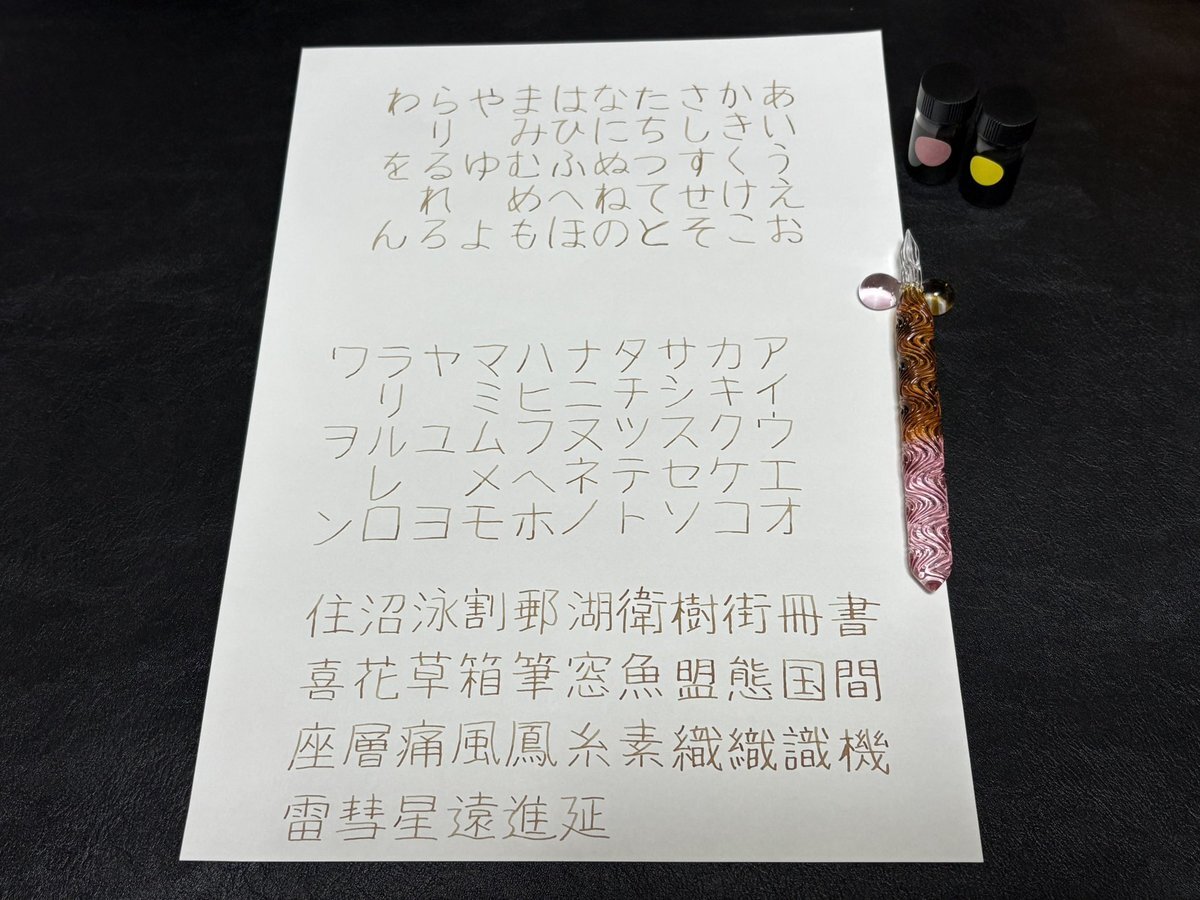 わらやまはなたさかあ
りみひにちしきい
をるゆむふぬつすくう
れめへねてせけえ
んろよもほのとそこお
ワラヤマハナタサカア
リミヒニチシキイ
ヲルユムフヌツスクウ
レメヘネテセケエ
ンロヨモホノトソコオ
住沼泳割郵湖衛樹街冊書
喜花草箱筆窓魚盟態国間
座層痛風鳳糸素織織識機
雷彗星遠進延